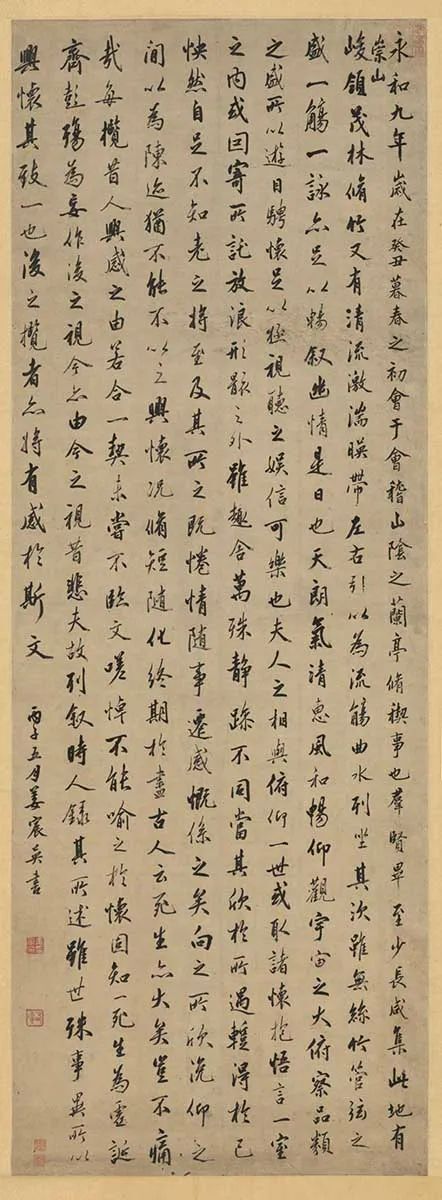 永和九年歲在癸丑暮春之初會于會稽山陰之蘭亭脩禊事也羣賢畢至少長咸集此地有
崇山
峻領茂林脩竹又有清流激湍暎帶左右引以為流觴曲水列坐其次雖無絲竹管弦之
盛一觴一詠亦足以暢叙幽情是日也天朗氣清惠風和暢仰觀宇宙之大俯察品類
之盛所以遊目騁懷足以極視聽之娛信可樂也夫人之相與俯仰一世或取諸懷抱悟言一室
之內或因寄所託放浪形骸之外雖趣舍萬殊靜躁不同當其欣於所遇蹔得於己
怏然自足不知老之將至及其所之既惓情隨事遷感慨係之矣向之所欣俛仰之
間以為陳迹猶不能不以之興懷況脩短隨化終期於盡古人云死生亦大矣豈不痛
哉每攬昔人興感之由若合一契未嘗不臨文嗟悼不能喻之於懷固知一死生為虛誕
齊彭殤為妄作後之視今亦由今之視昔悲夫故列叙時人錄其所述雖世殊事異所以
興懷其致一也後之攬者亦將有感於斯文
丙子五月姜宸英書